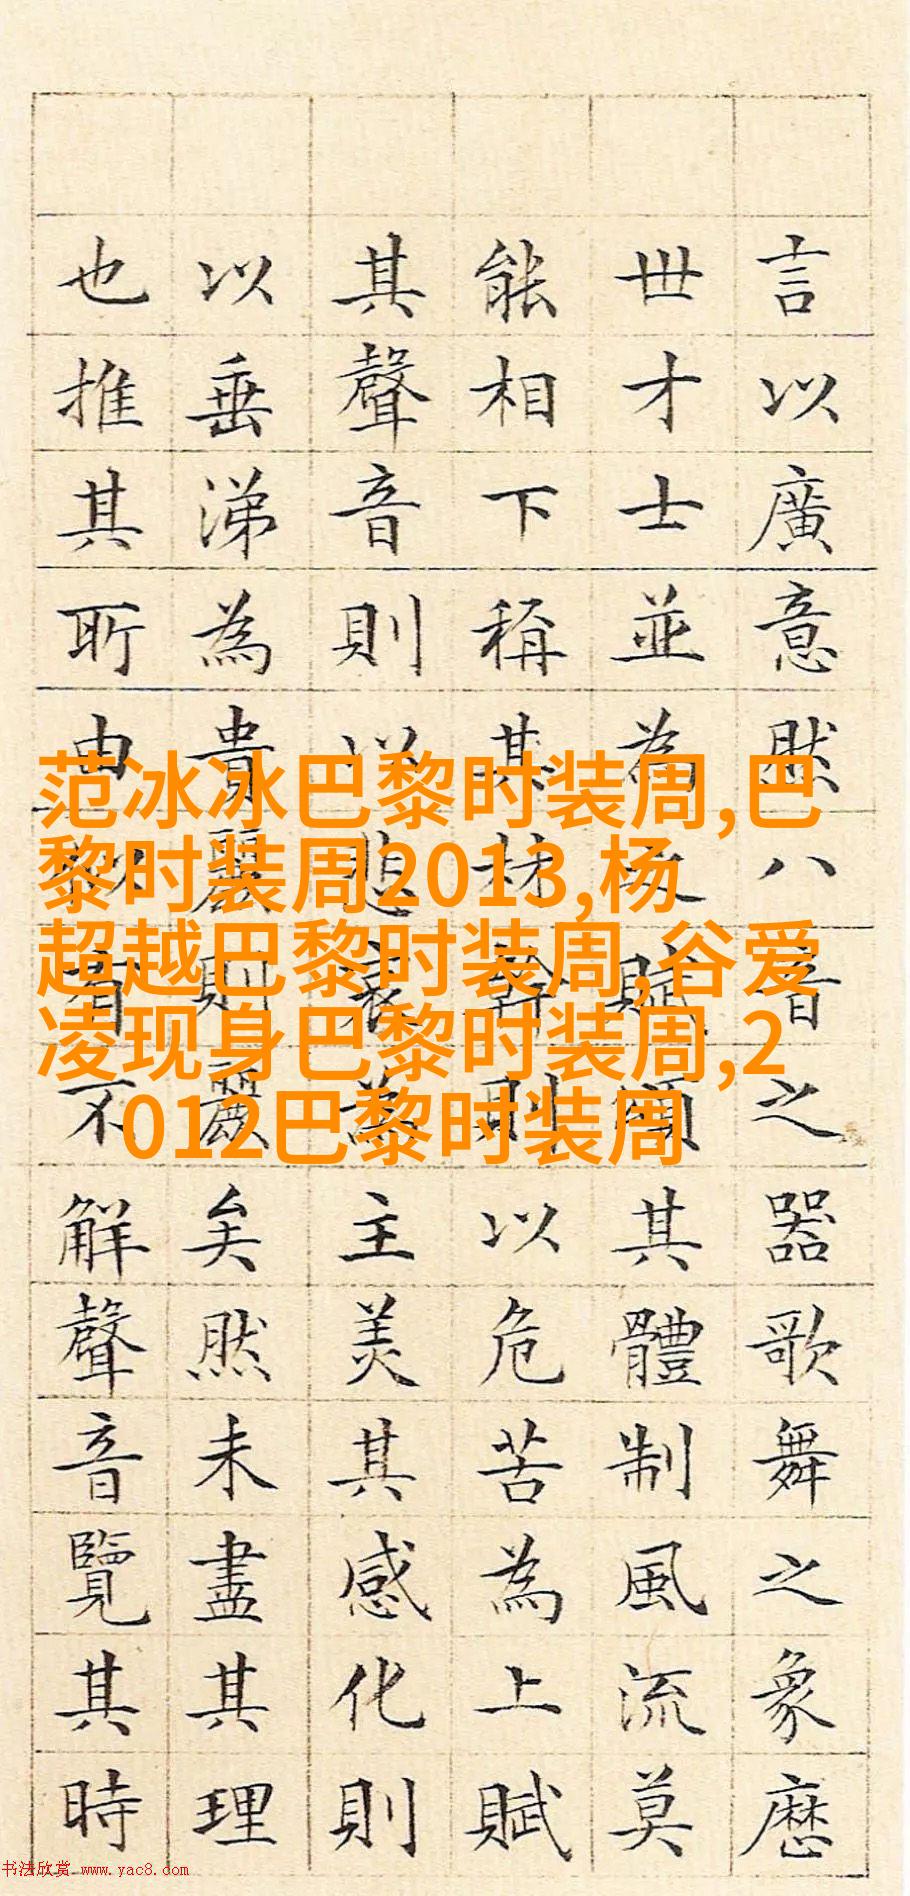 言以廣意然八音之器歌舞之象歷
世才士並為文賦頌其體制風流莫
能相下稱其材幹則以危苦為上賦
其聲音則以悲哀為主美其感化則
以垂涕為貴麗則麗矣然未盡其理
也推其所由似有不解聲音覽其時
范冰冰巴黎时装周,巴
黎时装周2013,杨
超越巴黎时装周,谷爱
凌现身巴黎时装周,2
012巴黎时装周
书法欣赏 www.yac8.com